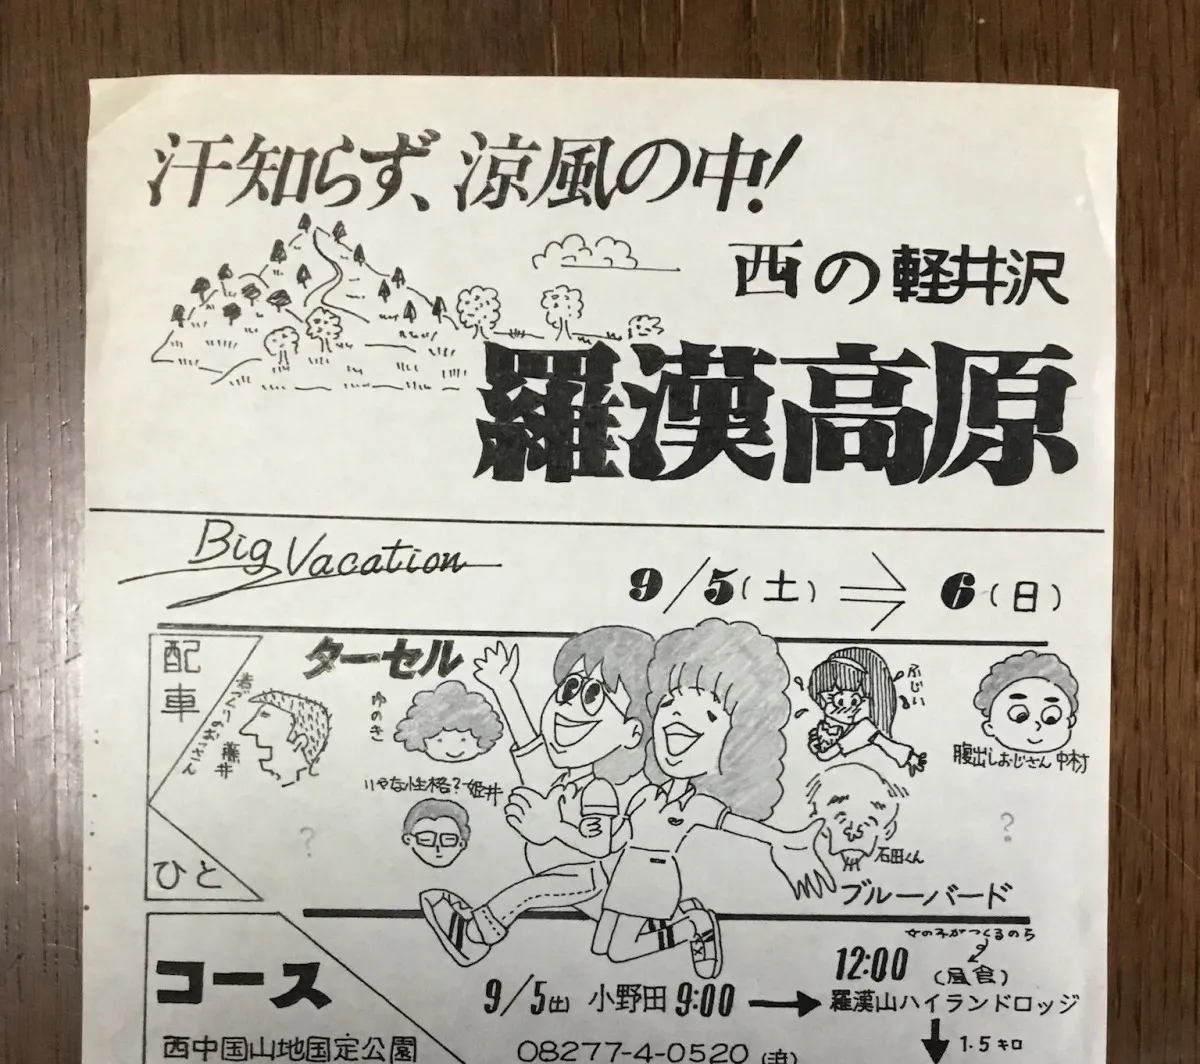 汗知らず、涼風の中!
西の軽井沢
羅漢高原
Big Vacation
9/5(土)⇒6(日)
配車
ひと
ターセル
藤井
ゆのき
いやな性格?姫井
?
ふじい
腹出しおじさん 中村
石田くん
?
ブルーバード
女の子がつくるのら
コース
9/5(土) 小野田 9:00 → 12:00 (昼食)
羅漢山ハイランドロッジ
↓ 1.5キロ
西中国山地国定公園
08277-4-0520 (泊)